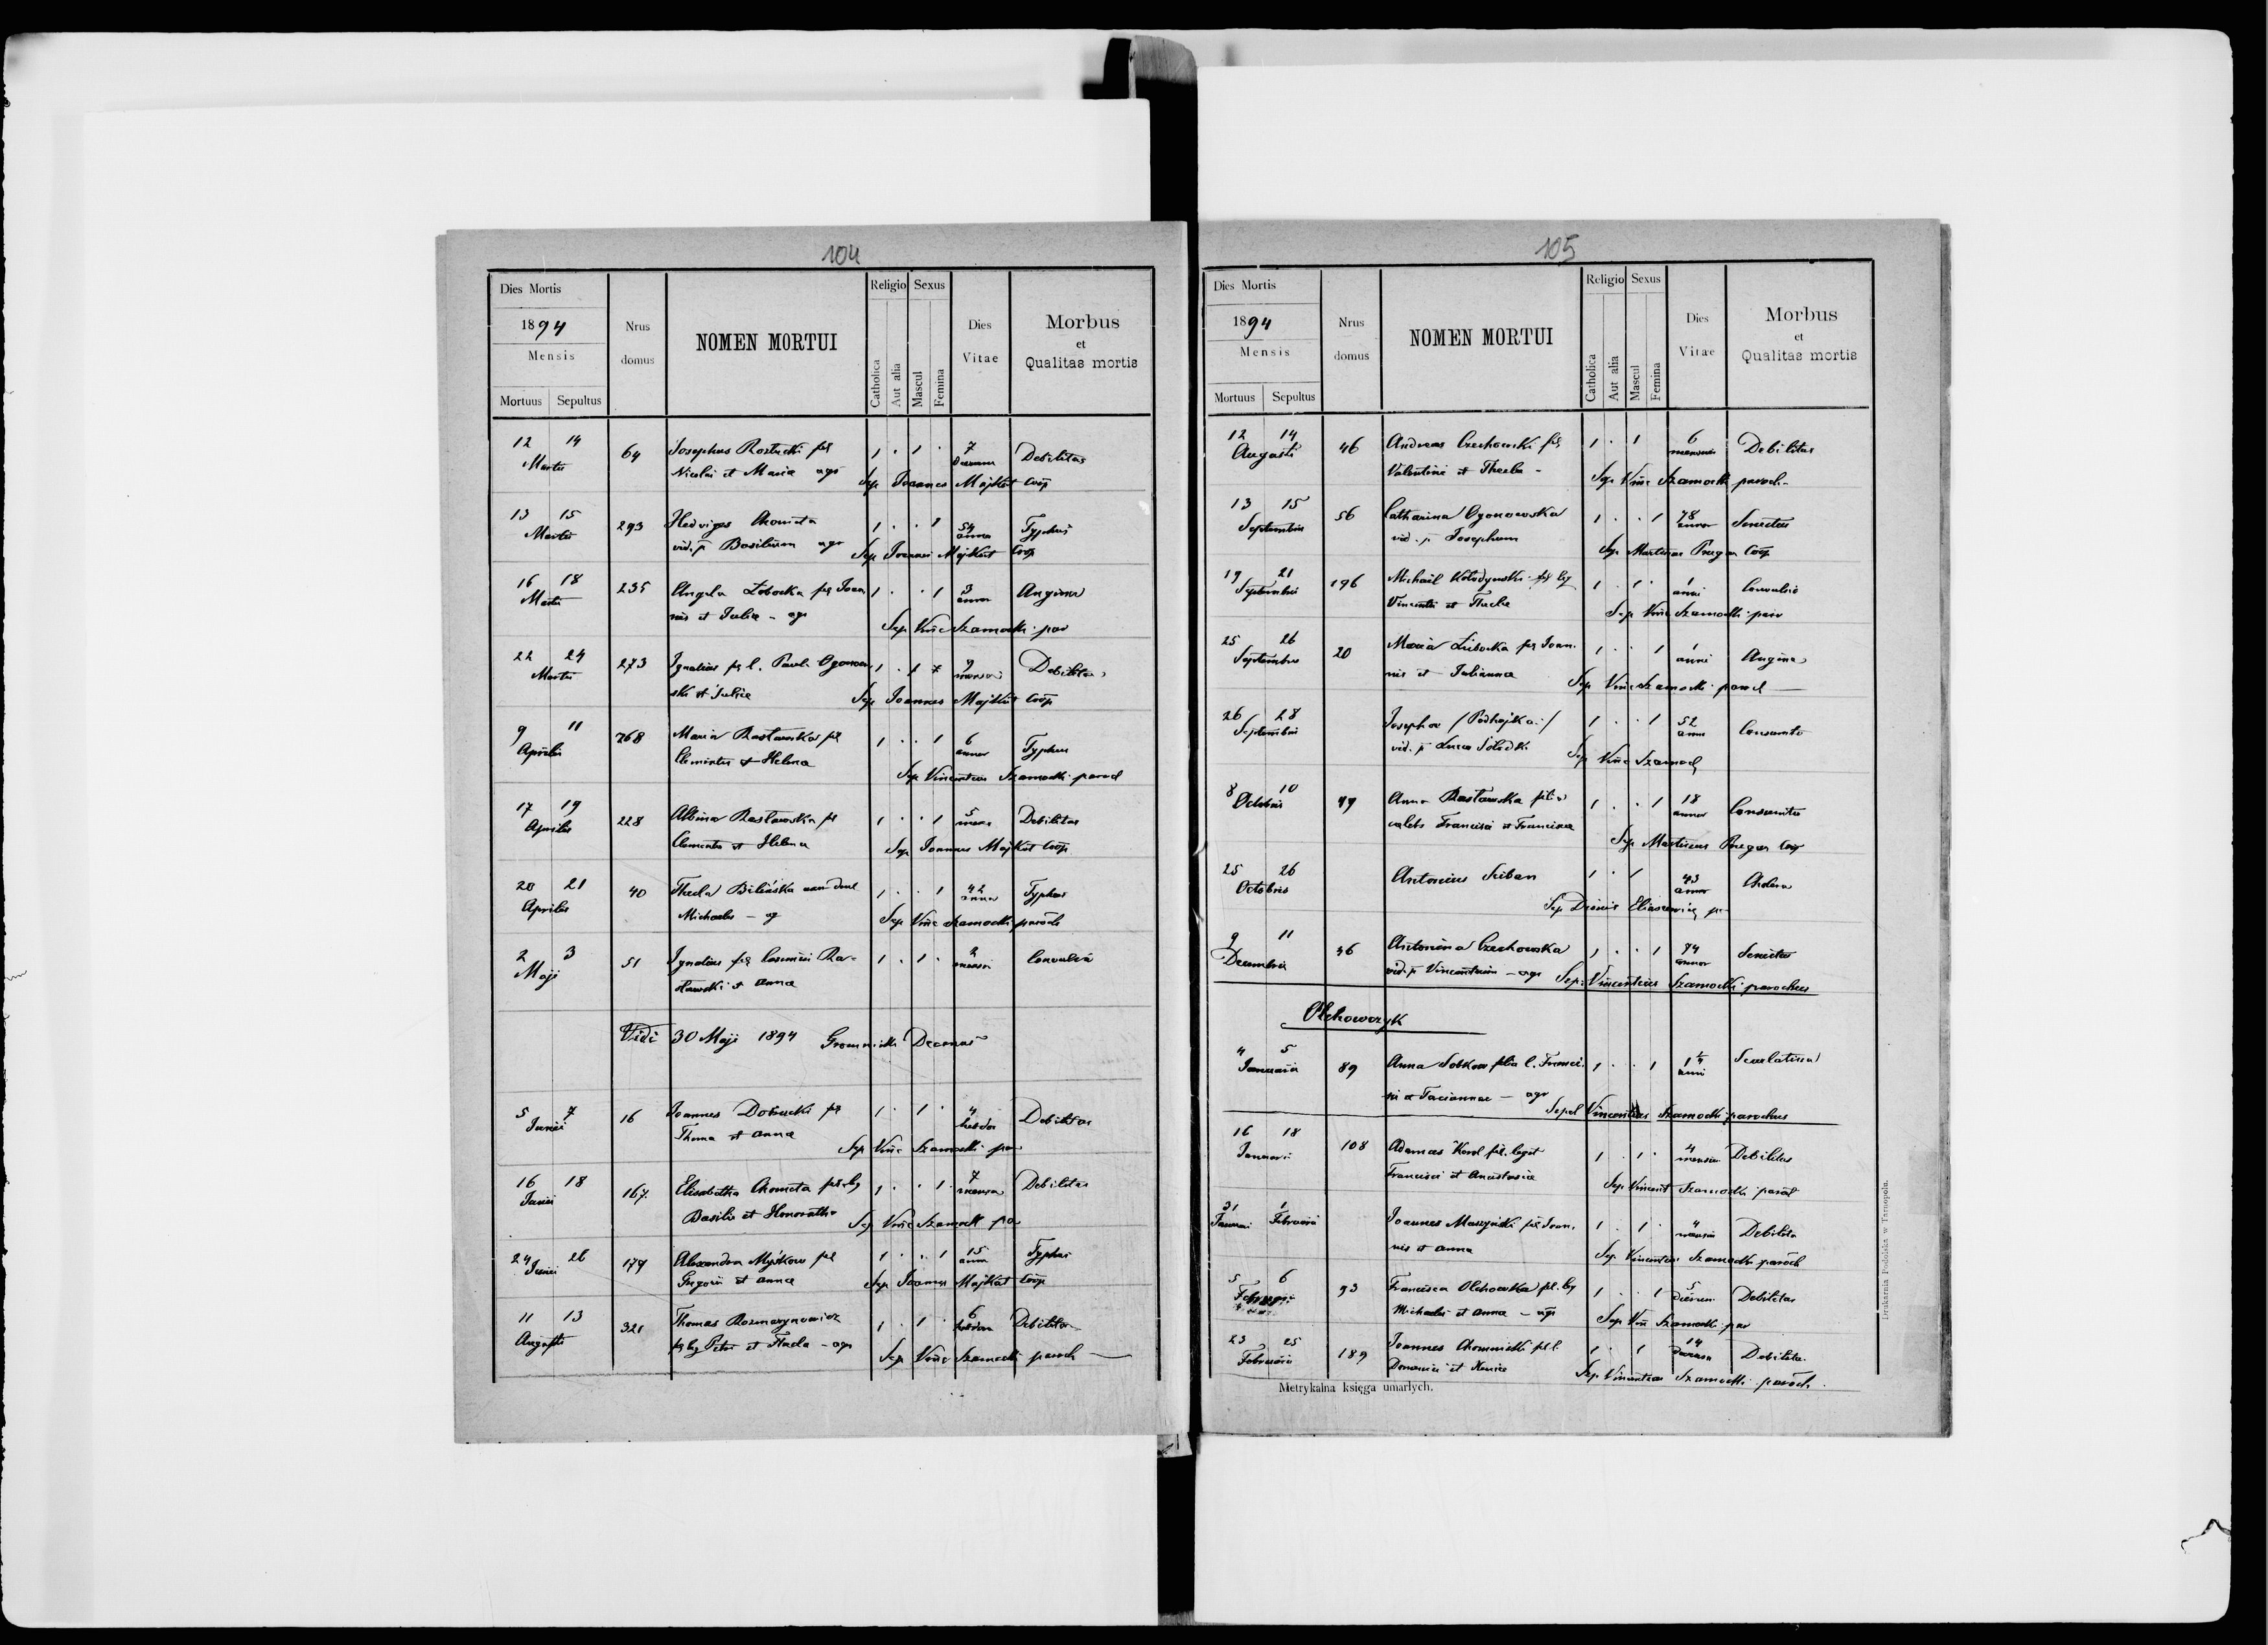 104
Dies Mortis
1894
Mensis
Mortuus Sepultus
Nrus domus
NOMEN MORTUI
Religio Sexus
Catholica Aut alia Mascul Femina
Dies Vitae
Morbus et Qualitas mortis
12 14 64 Josephus fil 1 . 1 . 7 Debilitas
Martii Nicolai et Maria agr Sep Joannes Majkut Coop
13 15 293 Hedviges Chometa 1 . . 1 54 Typhus
Martii vid. p Basilium agr Sep Joannes Majkut Coop
16 18 235 Angela fil Joan 1 . . 1 3 Angina
Martii nis et Julia - agr Sep Vinc Szamocki par
22 24 273 Ignatius fil l. Pauli Ogonow 1 . 1 9 Debilitas
Martii ski et Julia Sep Joannes Majkut Coop
9 11 268 Maria Rastawska fil 1 . . 1 6 Typhus
Aprilis Clementis et Helena Sep Vincentius Szamocki paroch
17 19 228 Albina Rastawska fil 1 . . 1 5 Debilitas
Aprilis Clementis et Helena Sep Joannes Majkut Coop
20 21 40 Thecla Bilińska 1 . . 1 42 Typhus
Aprilis Michaelis - ag Sep Vinc Szamocki paroch
2 3 51 Ignatius fil Casimiri Ra- 1 . 1 . 2 Convulsia
Maji stawski et Anna
Vidi 30 Maji 1894 Decanus
5 7 16 Joannes fil 1 . 1 . 4 Debilitas
Junii Thoma et Anna Sep Vinc Szamocki par
16 18 167 Elisabetha Chometa fil leg 1 . . 1 7 Debilitas
Junii Basilii et Honoratha Sep Vinc Szamocki par
24 26 179 Alexandra Myśkow fil 1 . . 1 15 Typhus
Junii Gregorii et Anna Sep Joannes Majkut Coop
11 13 321 Thomas Rozmarynowicz 1 . 1 . 6 Debilitas
Augusti fil leg Petri et Thecla - agr Sep Vinc Szamocki paroch
105
Dies Mortis
1894
Mensis
Mortuus Sepultus
Nrus domus
NOMEN MORTUI
Religio Sexus
Catholica Aut alia Mascul Femina
Dies Vitae
Morbus et Qualitas mortis
12 14 46 Andreas Czechowski fil 1 . 1 6 Debilitas
Augusti Valentini et Thecla - Sep Vinc Szamocki paroch
13 15 56 Catharina Ogonowska 1 . . 1 78 Senectus
Septembris vid. p Josephum Sep Martinus Coop
19 21 196 Michael Kołodynski fil leg 1 . 1 . 1 Convulsio
Septembris Vincentii et Thecla Sep Vinc Szamocki par
25 26 20 Maria fil Joan- 1 . . 1 1 Angina
Septembris nis et Julianna Sep Vinc Szamocki paroch
26 28 Josepha /Podhajska/ 1 . . 1 52
Septembris vid. p Luca Sep Vinc Szamock
8 10 49 Anna Rastawska filia 1 . . 1 18
Octobris caelebs Francisci et Francisca Sep Martinus Coop
25 26 Antonius 1 . 1 43 Cholera
Octobris Sep Dionis Eliasiewicz
9 11 46 Antonina Czechowska 1 . . 1 84 Senectus
Decembris vid. p Vincentium - agr Sep. Vincentius Szamocki parochus
Olchowczyk
4 5 89 Anna Sobkow filia l. Franci- 1 . . 1 Scarlatina
Januarii sci et Taciannae - agr Sepel Vincentius Szamocki parochus
16 18 108 Adamus Korol fil. legit 1 . 1 . 4 Debilitas
Januarii Francisci et Anastasia Sep Vincent Szamocki paroch
31 1 Joannes Maszyński fil Joan- 1 . 1 . 4 Debilitas
Januari Februarii nis et Anna Sep Vincentius Szamocki paroch
5 6 93 Francisca Olchowka fil. leg 1 . . 1 5 dierum Debilitas
Februarii Michaelis et Anna - agr Sep Vinc Szamocki par
23 25 189 Joannes fil l 1 . 1 14 Debilitas
Februarii et Xenia Sep Vincentius Szamocki paroch.
Metrykalna księga umarłych.
Drukarnia Podolska w Tarnopolu.